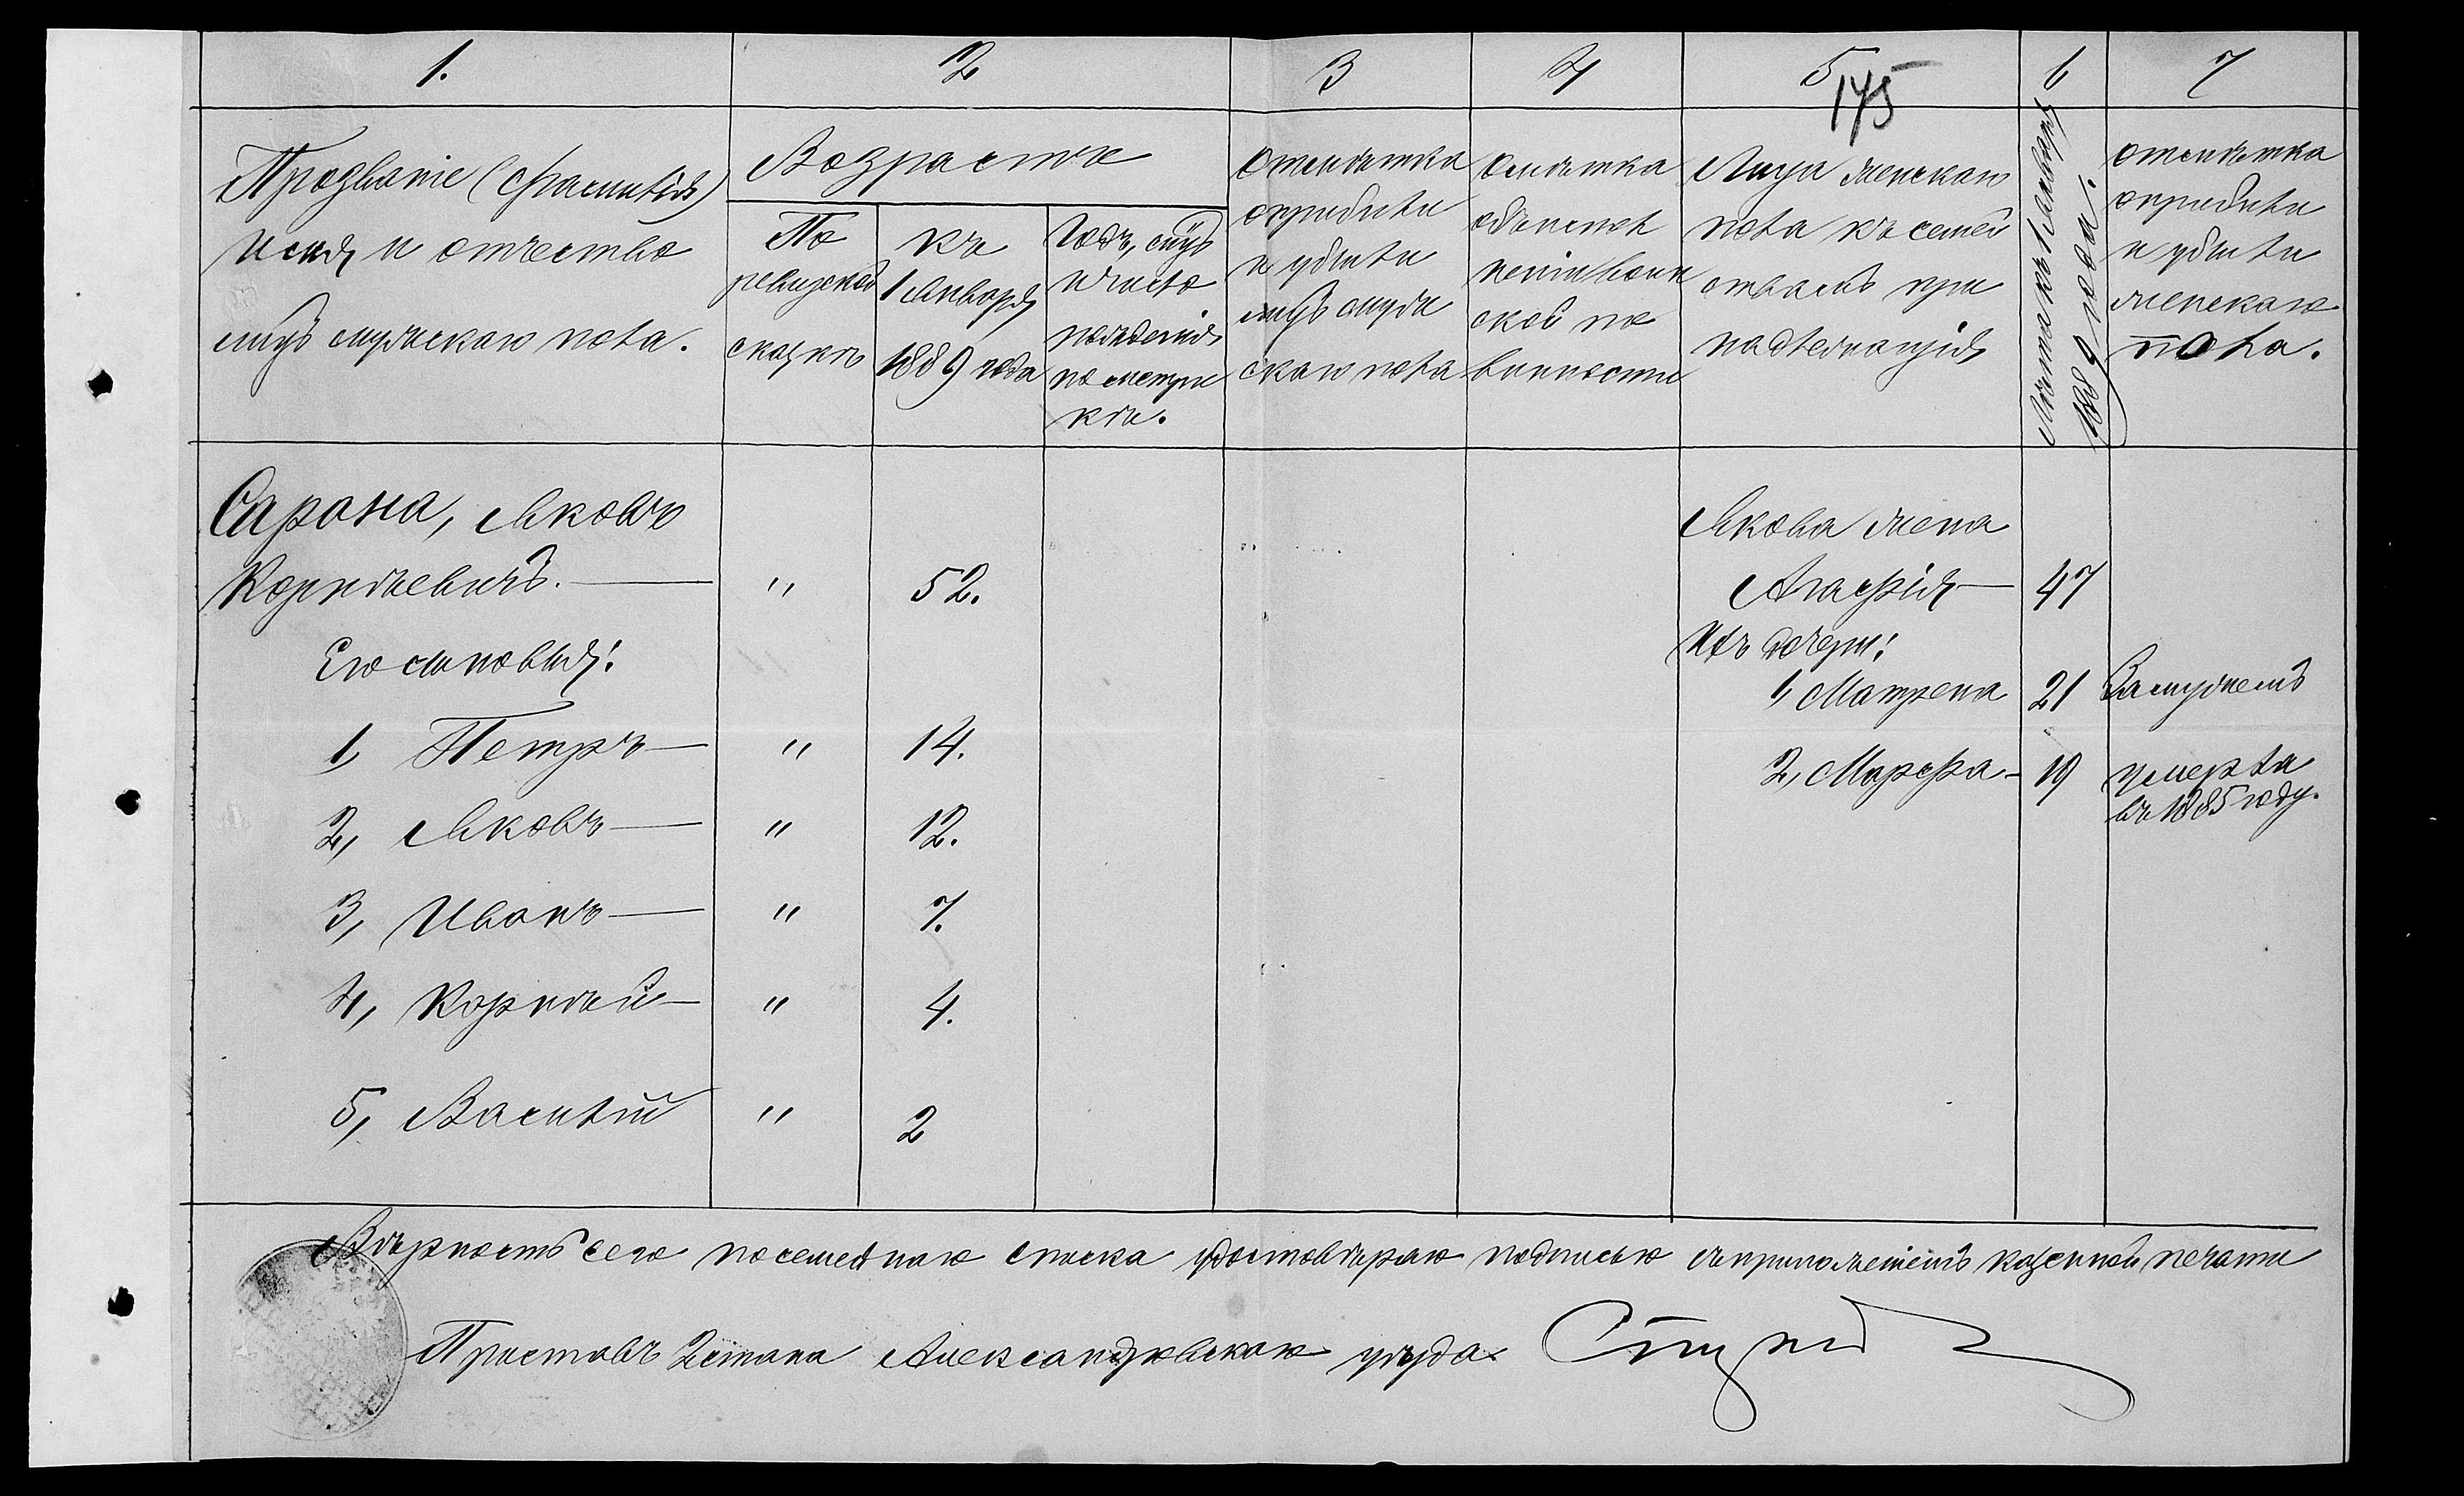 1.
2
3
4
5
6
7
175
Прозваніе (фамилія)
имя и отчество
лицъ мужскаго пола.
Возрастъ
По
ревизской
сказкѣ
къ
1 Января
1889 года
Годъ, мѣс.
и число
рожденія
по метри
кѣ.
Отмѣтка
о прибыли
и убыли
лицъ муже
скаго пола
Отмѣтка
объ испол
неніи воин
ской по
винности
Лица женскаго
пола къ семей
ствамъ при
надлежащія
Лѣта къ 1 Января
1889 года.
Отмѣтка
о прибыли
и убыли
женскаго
пола.
Сарана, Яковъ
Корнѣевичъ. — " 52.
Его сыновья:
1, Петръ — " 14.
2, Яковъ — " 12.
3, Иванъ — " 7.
4, Корнѣй — " 4.
5, Василій " 2
Якова жена
Агафія — 47
Ихъ дочери:
1, Матрена 21 Замужемъ
2, Марфа — 19 умерла
въ 1885 году.
Вѣрность сего посемейнаго списка удостовѣряю подписью съ приложеніемъ казенной печати
Приставъ 2 стана Александровскаго уѣзда